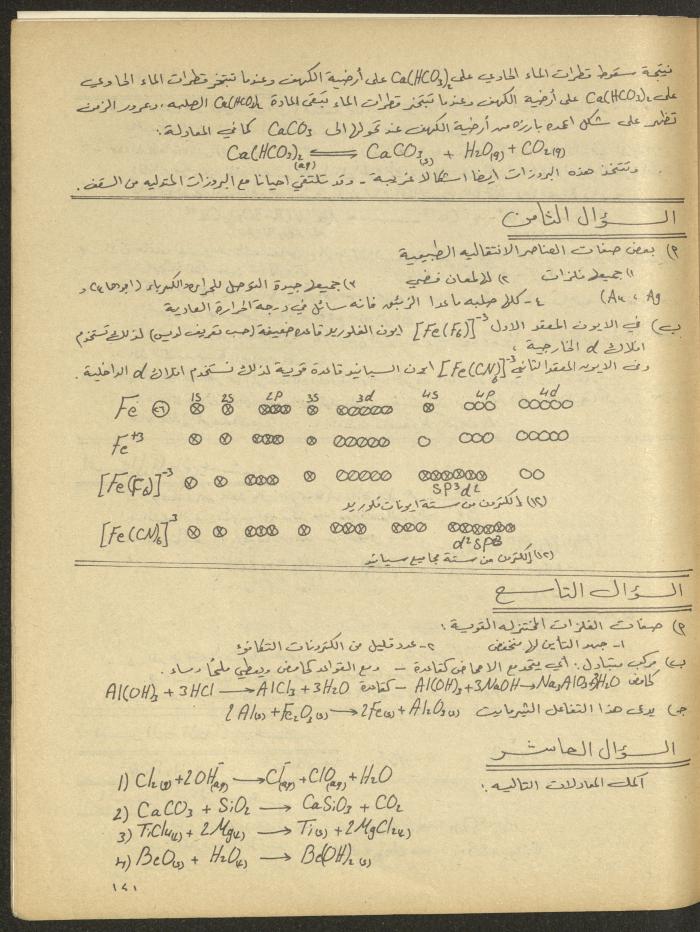 نتيجة سقوط قطرات الماء الحاوي على Ca(HCO3)2 على أرضية الكهف وعندما تتبخر قطرات الماء الحاوي
على Ca(HCO3)2 على أرضية الكهف وعندما تتبخر قطرات الماء تبقى المادة Ca(HCO3)2 الصلبه، وبمرور الزمن
تظهر على شكل اعمده بارزه من أرضية الكهف عند تحولها الى CaCO3 كما في المعادلة:
Ca(HCO3)2(aq) ⇌ CaCO3(s) + H2O(g) + CO2(g)
وتتخذ هذه البروزات ايضا اشكالا غريبة - وقد تلتقي احيانا مع البروزات المتدليه من السقف.
السؤال الثامن
٢) بعض صفات العناصر الانتقاليه الطبيعية
١) جميعها فلزات ٢) لها لمعان فضي ٣) جميعها جيدة التوصيل للحراره والكهرباء (
Au ، Ag) ٤- كلها صلبه ماعدا الزئبق فانه سائل في درجة الحرارة العادية
ب) في الايون المعقد الاول [Fe(F6)]-3 ايون الفلوريد قاعده ضعيفة (حسب تعريف لويس) لذلك تستخدم
افلاك d الخارجية.
وفي الايون المعقد الثاني [Fe(CN)6]-3 ايون السيانيد قاعدة قوية لذلك تستخدم افلاك d الداخلية.
1S 2S 2P 3S 3d 4S 4P 4d
Fe 26
Fe+3
[Fe(F6)]-3
SP3d2
(١٢) الكترون من ستة ايونات فلوريد
[Fe(CN)6]-3
d2SP3
(١٢) الكترون من ستة مجاميع سيانيد
السؤال التاسع
٢) صفات الفلزات المختزله القوية:
١- جهد التأين لها منخفض ٢- عدد قليل من الكترونات التكافؤ
ب) مركب متبادل: أي يتحد مع الاحماض كقاعدة - ومع القواعد كحامض ويعطي ملحًا وماء.
كحامض Al(OH)3 + 3NaOH → Na3AlO3 + 3H2O - كقاعدة Al(OH)3 + 3HCl → AlCl3 + 3H2O
جـ) يدعى هذا التفاعل الثيرمايت 2Al(s) + Fe2O3(s) → 2Fe(s) + Al2O3(s)
السؤال العاشر
اكمل المعادلات التاليه:
1) Cl2(g) + 2OH-(aq) → Cl-(aq) + ClO-(aq) + H2O
2) CaCO3 + SiO2 → CaSiO3 + CO2
3) TiCl4(l) + 2Mg(l) → Ti(s) + 2MgCl2(l)
4) BeO(s) + H2O(l) → Be(OH)2(s)
١٤١